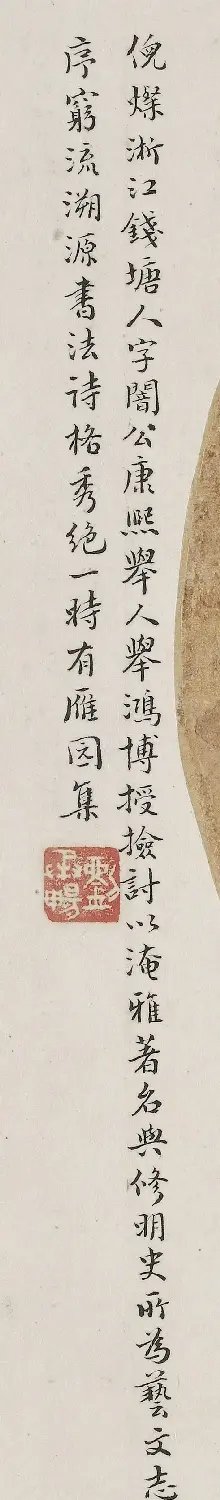 倪燦浙江錢塘人字闇公康熙舉人舉鴻博授撿討以淹雅著名與修明史所為藝文志
序窮流溯源書法詩格秀絕一時有雁园集